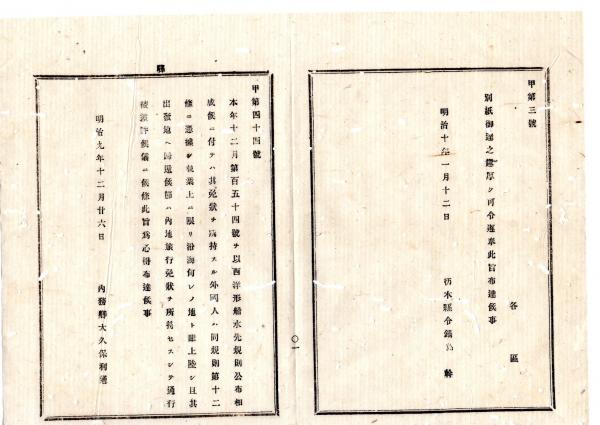 甲第三號
各區
別紙御達之趣厚ク可令遵奉此旨布達候事
明治十年一月十二日
栃木縣令鍋島幹
〇一
縣
甲第四十四號
本年十二月第百五十四號ヲ以西洋形船水先規則公布相
成候ニ付テハ其免狀ヲ所持スル外國人ハ同規則第十二
條ニ憑據シ執業上ニ限リ沿海何レノ地ト雖上陸シ且其
出發地ヘ歸還候節ハ內地旅行免狀ヲ所持セスシテ通行
被差許候儀ニ候條此旨爲心得布達候事
明治九年十二月廿六日
內務卿大久保利通